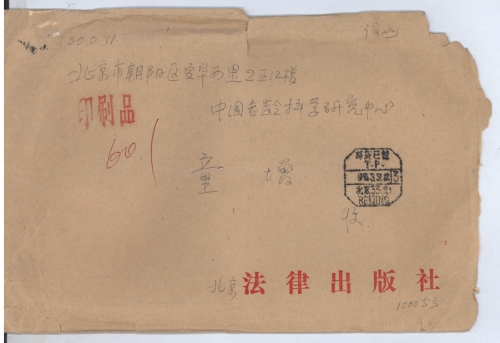 100011
北京市朝阳区安华西里2区12楼
印刷品
中国老龄科学研究中心
601
童增
邮资已付
T.P.
北京
BEIJING
收
北京 法律出版社
100053